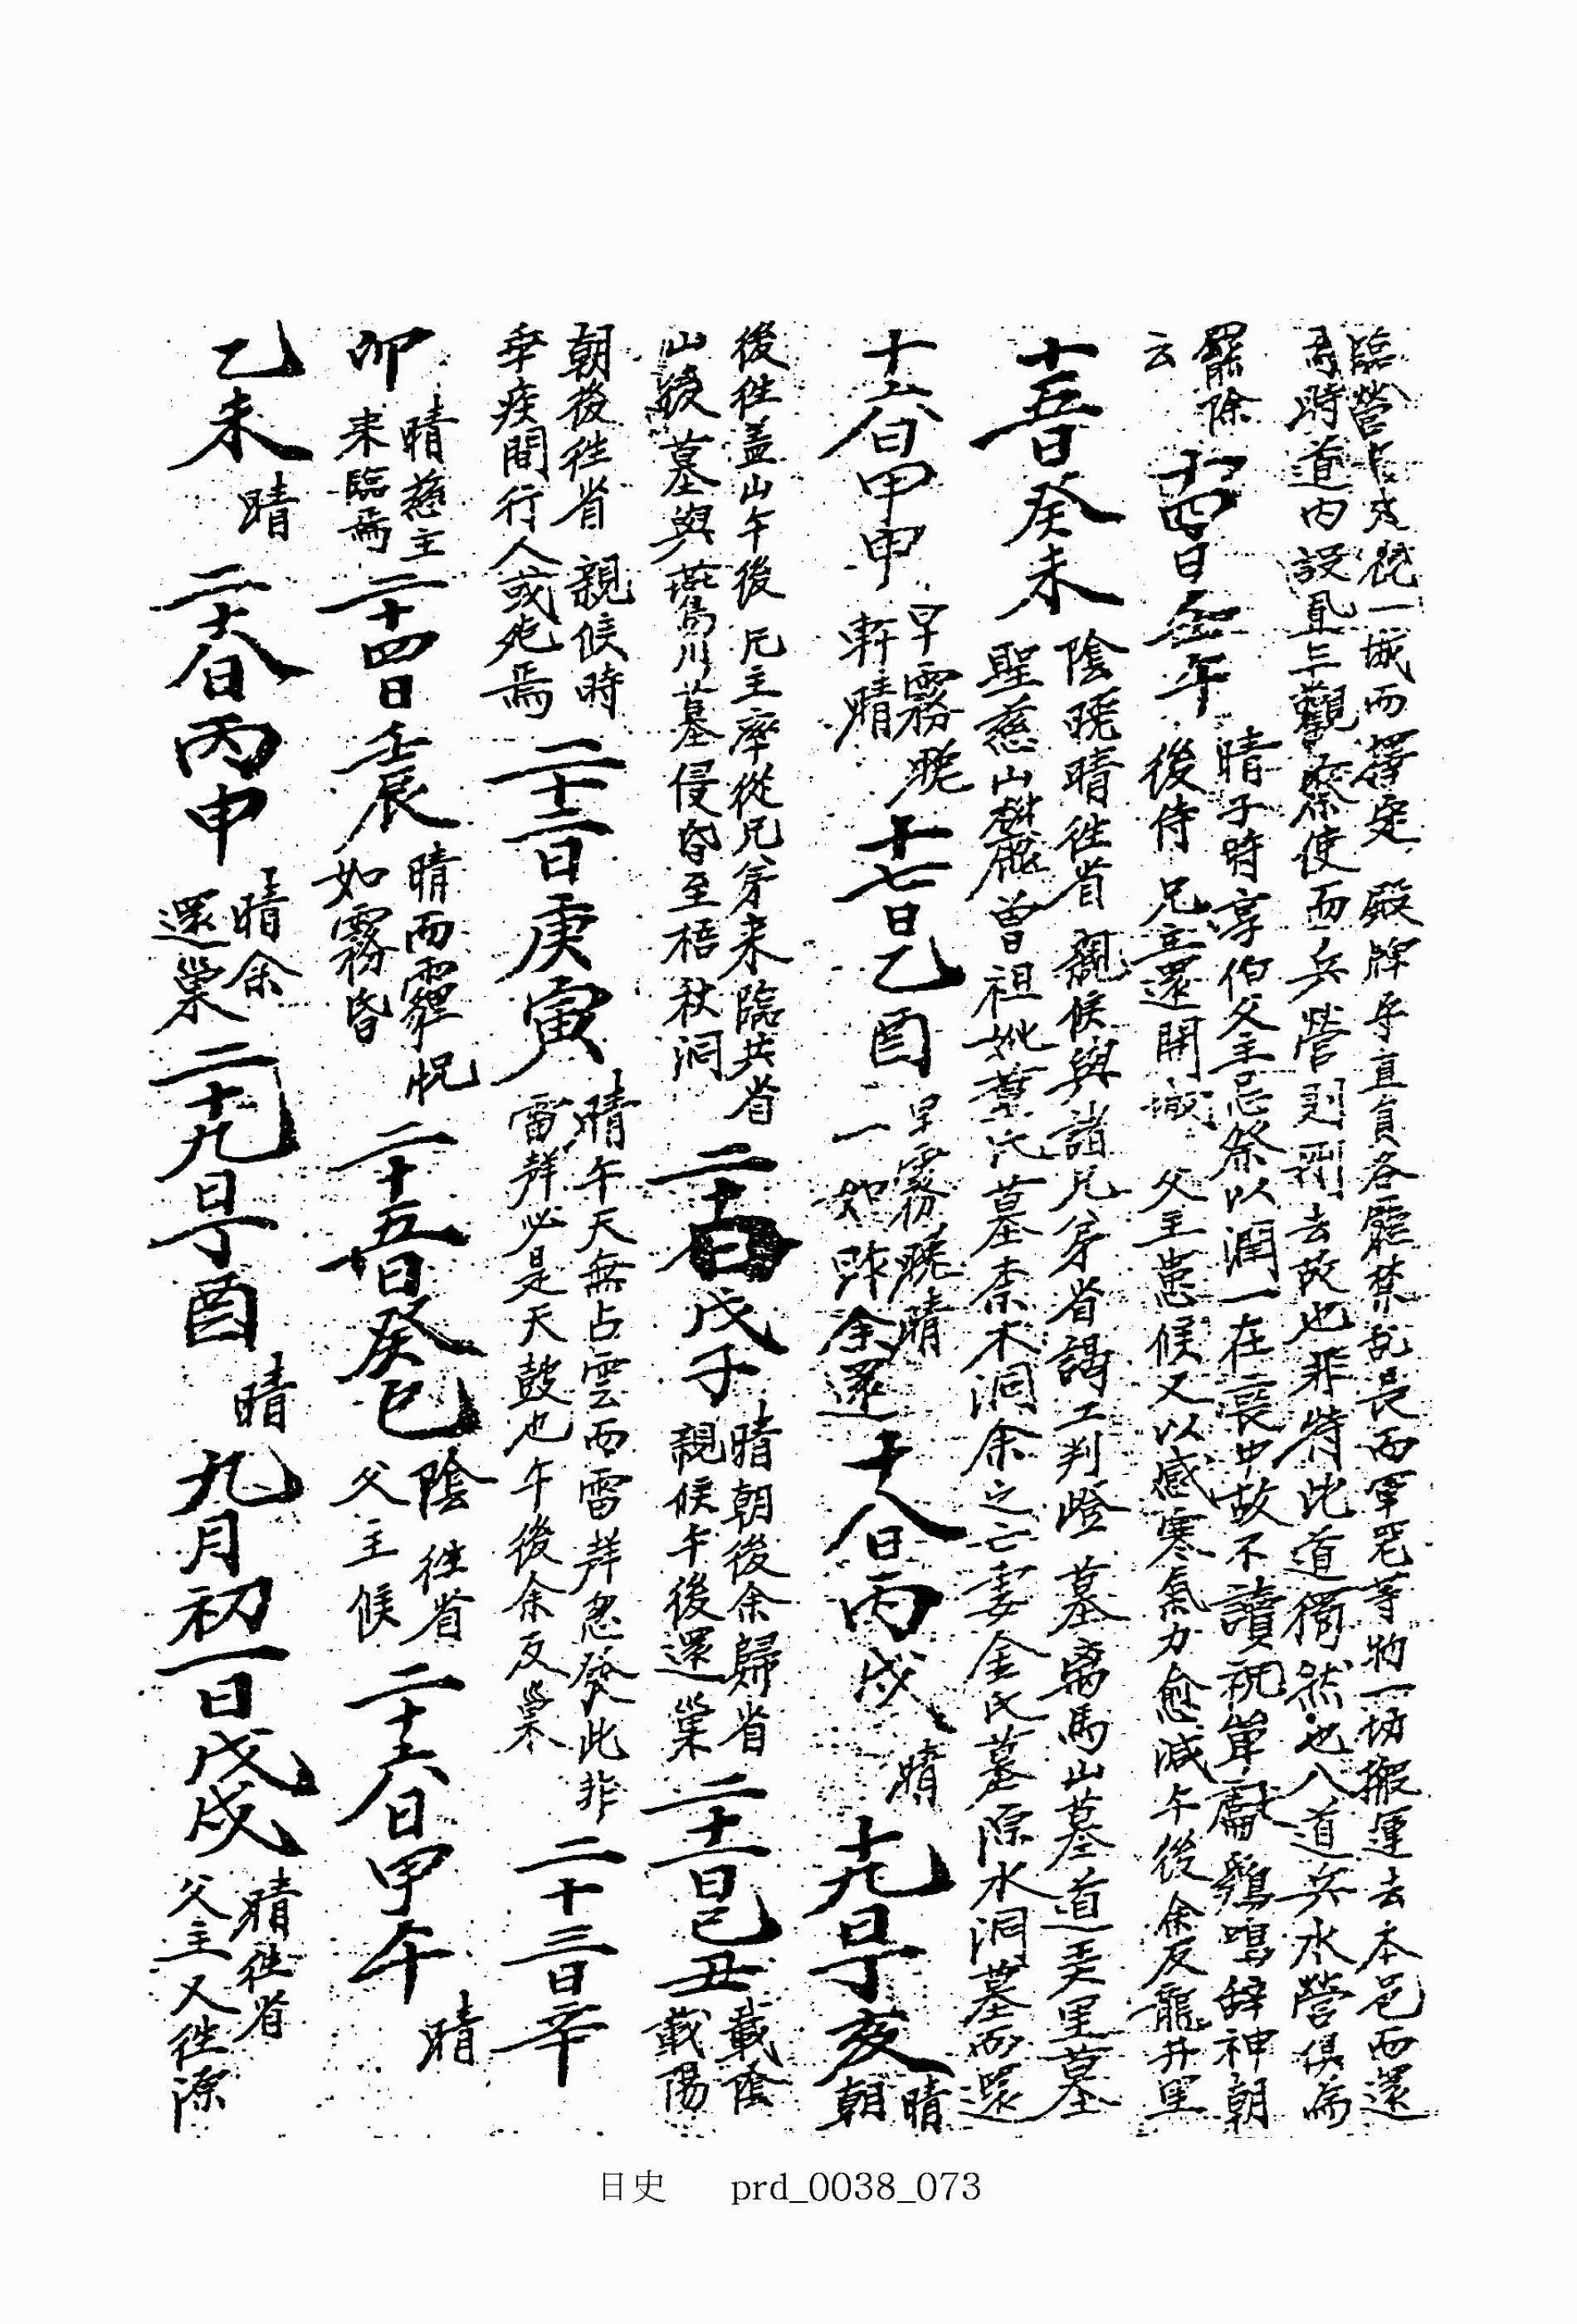 臨營長定視一城而擇定 殿牌乎直員各廳禁亂長而軍器等物一切搬運去本邑而還
爲時道內設且三觀察使而兵營則刪去故也非特此道獨然也八道兵水營俱爲
罷除
云
十四日壬午
晴子時享伯父主忌祭以潤一在喪中故不讀祝單獻鷄鳴辭神朝
後侍 兄主還開撤 父主患候又以感寒氣力愈減午後余反龍井里
十五日癸未
陰晩晴往省 親候與諸兄弟省謁工判嶝 墓离馬山墓道美里墓
聖慈山麓曾祖妣葉氏墓柰木洞余之亡妻金氏墓際水洞墓而還
十六日甲申
早霧晩
軒晴
十七日乙酉
早霧晩晴
一如昨余還
十八日丙戌
晴
十九日丁亥
晴
朝
後往盖山午後 兄主率從兄弟來臨共省
山後墓與燕島川墓侵昏至梧秋洞
二十日戊子
晴朝後余歸省
親候午後還巢
二十一日己丑
載陰
載陽
朝後往省 親候時
幸疾間行人或死焉
二十二日庚寅
晴午天無占雲而雷聲忽發此非
雷聲必是天鼓也午後余反巢
二十三日辛
卯
晴慈主
來臨焉
二十四日壬辰
晴而霾怳
如霧昏
二十五日癸巳
陰 往省
父主候
二十六日甲午
晴
乙未
晴
二十八日丙申
晴余
還巢
二十九日丁酉
晴
九月初一日戊戌
晴往省
父主又往際
日史 prd_0038_073